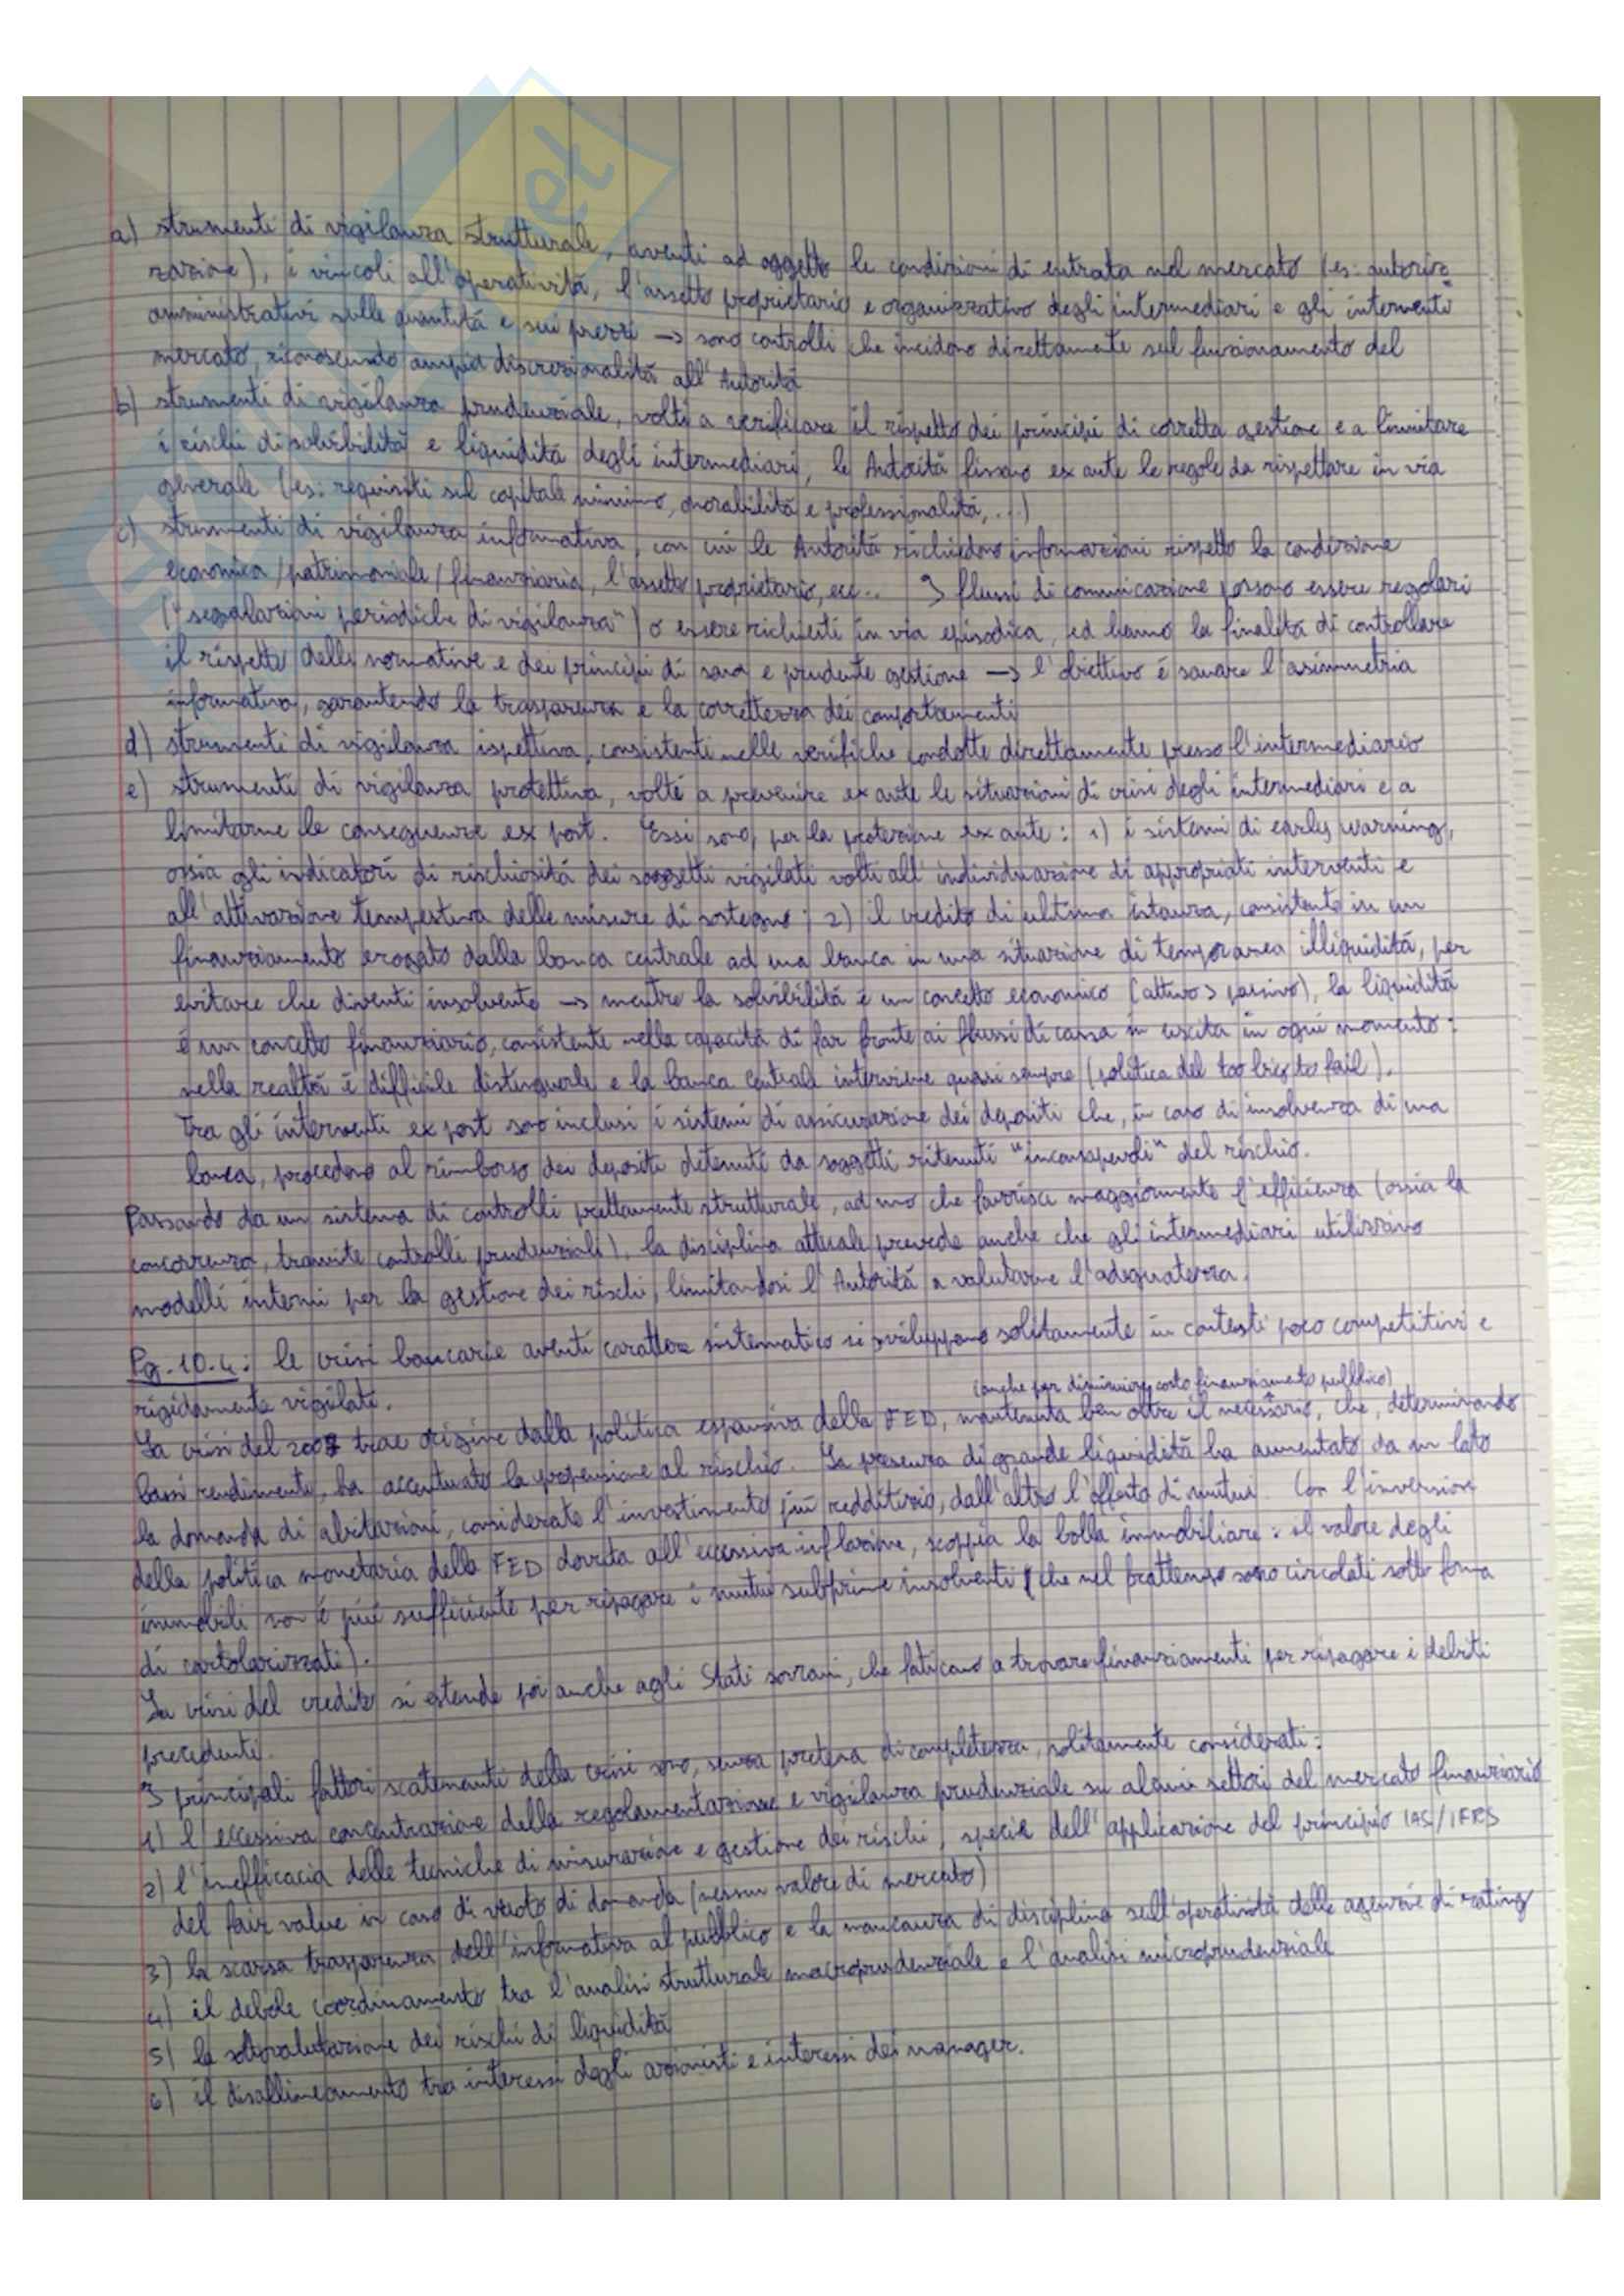 a) strumenti di vigilanza strutturale, aventi ad oggetto le condizioni di entrata nel mercato (es: autoriz
zazione), i vincoli all'operatività, l'assetto proprietario e organizzativo degli intermediari e gli interventi
amministrativi sulle quantità e sui prezzi -> sono controlli che incidono direttamente sul funzionamento del
mercato, riconoscendo ampia discrezionalità all'Autorità
b) strumenti di vigilanza prudenziale, volti a verificare il rispetto dei principi di corretta gestione e a limitare
i rischi di solvibilità e liquidità degli intermediari, le Autorità fissano ex ante le regole da rispettare in via
generale (es: requisiti sul capitale minimo, onorabilità e professionalità, ...)
c) strumenti di vigilanza informativa, con cui le Autorità richiedono informazioni rispetto la condizione
economica/patrimoniale/finanziaria, l'assetto proprietario, ecc... I flussi di comunicazione possono essere regolari
("segnalazioni periodiche di vigilanza") o essere richiesti in via episodica, ed hanno la finalità di controllare
il rispetto delle normative e dei principi di sana e prudente gestione -> l'obiettivo è sanare l'asimmetria
informativa, garantendo la trasparenza e la correttezza dei comportamenti
d) strumenti di vigilanza ispettiva, consistenti nelle verifiche condotte direttamente presso l'intermediario
e) strumenti di vigilanza protettiva, volti a prevenire ex ante le situazioni di crisi degli intermediari e a
limitarne le conseguenze ex post. Essi sono, per la protezione ex ante: 1) i sistemi di early warning,
ossia gli indicatori di rischiosità dei soggetti vigilati volti all'individuazione di appropriati interventi e
all'attivazione tempestiva delle misure di sostegno; 2) il credito di ultima istanza, consistente in un
finanziamento erogato dalla banca centrale ad una banca in una situazione di temporanea illiquidità, per
evitare che diventi insolvente -> mentre la solvibilità è un concetto economico (attivo > passivo), la liquidità
è un concetto finanziario, consistente nella capacità di far fronte ai flussi di cassa in uscita in ogni momento:
nella realtà è difficile distinguerle e la banca centrale interviene quasi sempre (politica del too big to fail).
Tra gli interventi ex post sono inclusi i sistemi di assicurazione dei depositi che, in caso di insolvenza di una
banca, procedono al rimborso dei depositi detenuti da soggetti ritenuti "inconsapevoli" del rischio.
Passando da un sistema di controlli prettamente strutturale, ad uno che favorisce maggiormente l'efficienza (ossia la
concorrenza, tramite controlli prudenziali), la disciplina attuale prevede anche che gli intermediari utilizzino
modelli interni per la gestione dei rischi, limitandosi l'Autorità a valutarne l'adeguatezza.
Pg. 10.4: le crisi bancarie aventi carattere sistematico si sviluppano solitamente in contesti poco competitivi e
rigidamente vigilati.
(anche per diminuire costo finanziamento pubblico)
La crisi del 2007 trae origine dalla politica espansiva della FED, mantenuta ben oltre il necessario, che, determinando
bassi rendimenti, ha accentuato la propensione al rischio. La presenza di grande liquidità ha aumentato da un lato
la domanda di abitazioni, considerate l'investimento più redditizio, dall'altro l'offerta di mutui. Con l'inversione
della politica monetaria della FED dovuta all'eccessiva inflazione, scoppia la bolla immobiliare: il valore degli
immobili non è più sufficiente per ripagare i mutui subprime insolventi (che nel frattempo sono circolati sotto forma
di cartolarizzati).
La crisi del credito si estende poi anche agli Stati sovrani, che faticano a trovare finanziamenti per ripagare i debiti
precedenti.
I principali fattori scatenanti della crisi sono, senza pretesa di completezza, solitamente considerati:
1) l'eccessiva concentrazione della regolamentazione e vigilanza prudenziale su alcuni settori del mercato finanziario
2) l'inefficacia delle tecniche di misurazione e gestione dei rischi, specie dell'applicazione del principio IAS/IFRS
del fair value in caso di vuoto di domanda (nessun valore di mercato)
3) la scarsa trasparenza dell'informativa al pubblico e la mancanza di disciplina sull'operatività delle agenzie di rating
4) il debole coordinamento tra l'analisi strutturale macroprudenziale e l'analisi microprudenziale
5) la sottovalutazione dei rischi di liquidità
6) il disallineamento tra interessi degli azionisti e interessi dei manager.